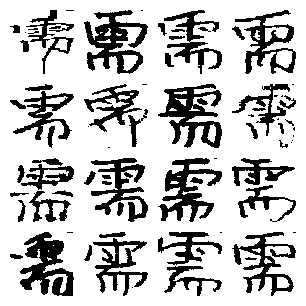 需需需需
需需需需
需需需需
需需需需